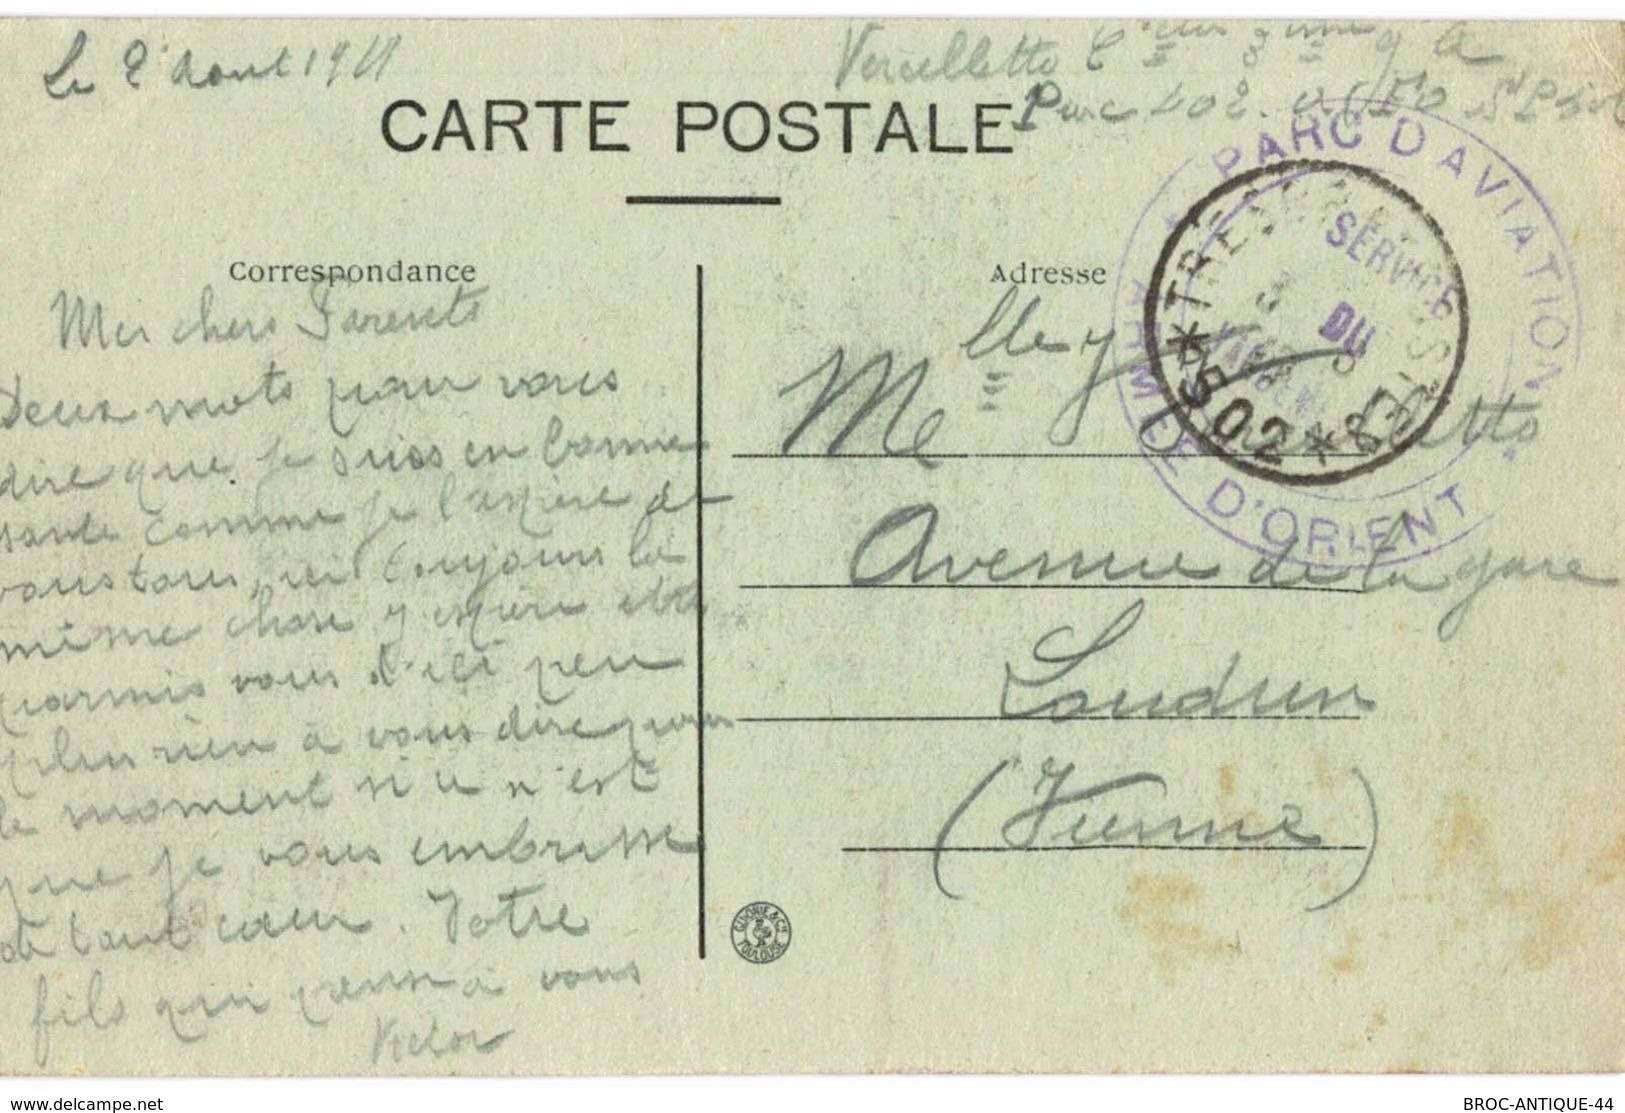 Le 2 Aout 191
Vercelletto
Parc 502.
CARTE POSTALE
PARC D'AVIATION
ARMÉE D'ORIENT
SERVICE
DU
TRESOR ET POSTES
* 502 *
Correspondance
Adresse
Mes chers Parents
Deux mots pour vous
dire que je suis en bonne
sante comme je l'espère de
vous tous, ici toujours la
même chose j espère etre
parmis vous d'ici peu
plus rien a vous dire pour
le moment si ce n'est
que je vous embrasse
de tout cœur. Votre
fils qui pense a vous
Victor
Melle Y Vercelletto
Avenue de la gare
Loudun
(Vienne)
GUIONIE & Cie
TOULOUSE
www.delcampe.net
BROC-ANTIQUE-44